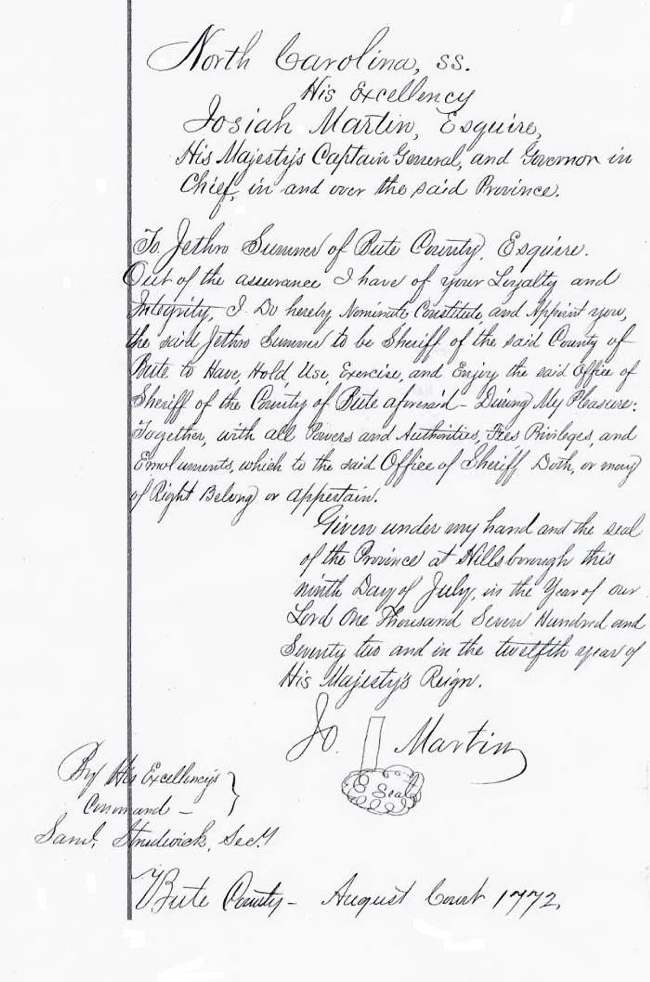 North Carolina, ss.
His Excellency
Josiah Martin, Esquire,
His Majesty's Captain General, and Governor in
Chief, in and over the said Province.
To Jethro Sumner of Bute County, Esquire.
Out of the assurance I have of your Loyalty and
Integrity, I Do hereby Nominate Constitute and Appoint you,
the said Jethro Sumner to be Sheriff of the said County of
Bute to Have, Hold, Use, Exercise, and Enjoy the said Office of
Sheriff of the County of Bute aforesaid - During My Pleasure:
Together, with all Powers and Authorities, Fees Privileges, and
Emoluments, which to the said Office of Sheriff Doth, or may
of Right Belong or appertain.
Given under my hand and the seal
of the Province at Hillsborough this
ninth Day of July, in the Year of our
Lord One Thousand Seven Hundred and
Seventy two and in the twelfth year of
His Majesty's Reign.
Jo. Martin
Seal
By His Excellency's
Command -
Saml. Strudwick, Secy
Bute County - August Court 1772.